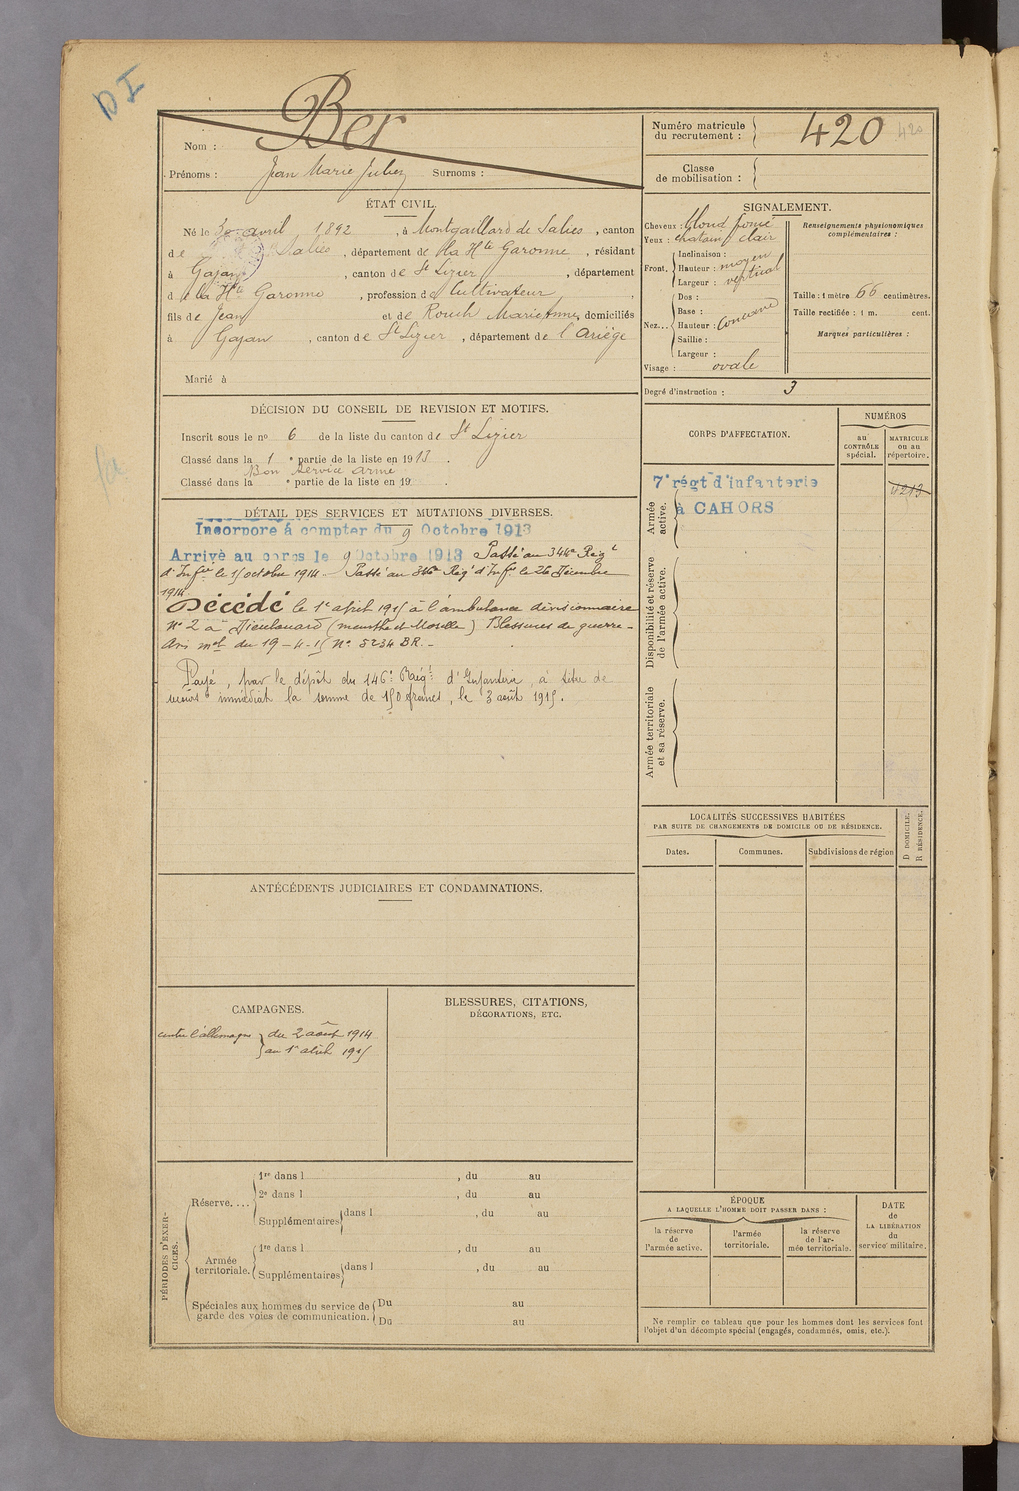 DI
Nom : Ber
Prénoms : Jean Marie Julien Surnoms :
Numéro matricule du recrutement : 420 420
Classe de mobilisation :
ÉTAT CIVIL.
Né le 30 avril 1892, à Montgaillard de Salies, canton
de Salies, département de la Hte Garonne, résidant
à Gajan, canton de St Lizier, département
de la Hte Garonne, profession de Cultivateur,
fils de Jean et de Rouch Marie Anne, domiciliés
à Gajan, canton de St Lizier, département de l'Ariège
Marié à
SIGNALEMENT.
Cheveux : blond foncé
Yeux : chatain clair
Front. Inclinaison :
Hauteur : moyen
Largeur : vertical
Nez... Dos :
Base :
Hauteur : concave
Saillie :
Largeur :
Visage : ovale
Renseignements physionomiques complémentaires :
Taille : 1 mètre 66 centimètres.
Taille rectifiée : 1 m. cent.
Marques particulières :
Degré d'instruction : 3
DÉCISION DU CONSEIL DE REVISION ET MOTIFS.
Inscrit sous le no 6 de la liste du canton de St Lizier
Classé dans la 1 e partie de la liste en 1913.
Bon service armé
Classé dans la e partie de la liste en 19 .
DÉTAIL DES SERVICES ET MUTATIONS DIVERSES.
Incorporé à compter du 9 Octobre 1913
Arrivé au corps le 9 Octobre 1913 Passé au 344e Régt
d'Infie le 15 octobre 1914. Passé au 346e Régt d'Infie le 26 Décembre
1914
Décédé le 1er avril 1915 à l'ambulance divisionnaire
No 2 à Dieulouard (meurthe et Moselle) Blessures de guerre -
Avis mel du 19-4-15 No 5234 BR. -
Payé, par le dépôt du 146e Régt d'Infanterie, à titre de
secours immédiat la somme de 150 francs, le 3 août 1915.
CORPS D'AFFECTATION.
NUMÉROS
au CONTRÔLE spécial.
MATRICULE ou au répertoire.
Armée active.
7e régt d'infanterie
à CAHORS
4213
Disponibilité et réserve de l'armée active.
Armée territoriale et sa réserve.
LOCALITÉS SUCCESSIVES HABITÉES
PAR SUITE DE CHANGEMENTS DE DOMICILE OU DE RÉSIDENCE.
D DOMICILE.
R RÉSIDENCE.
Dates. Communes. Subdivisions de région
ANTÉCÉDENTS JUDICIAIRES ET CONDAMNATIONS.
CAMPAGNES.
contre l'allemagne du 2 août 1914
au 1er avril 1915
BLESSURES, CITATIONS,
DÉCORATIONS, ETC.
PÉRIODES D'EXERCICES.
Réserve.... 1re dans l , du au
2e dans l , du au
Supplémentaires dans l , du au
Armée territoriale. 1re dans l , du au
Supplémentaires dans l , du au
Spéciales aux hommes du service de garde des voies de communication. Du au
Du au
ÉPOQUE
A LAQUELLE L'HOMME DOIT PASSER DANS :
la réserve de l'armée active.
l'armée territoriale.
la réserve de l'armée territoriale.
DATE de LA LIBÉRATION du service militaire.
Ne remplir ce tableau que pour les hommes dont les services font
l'objet d'un décompte spécial (engagés, condamnés, omis, etc.).